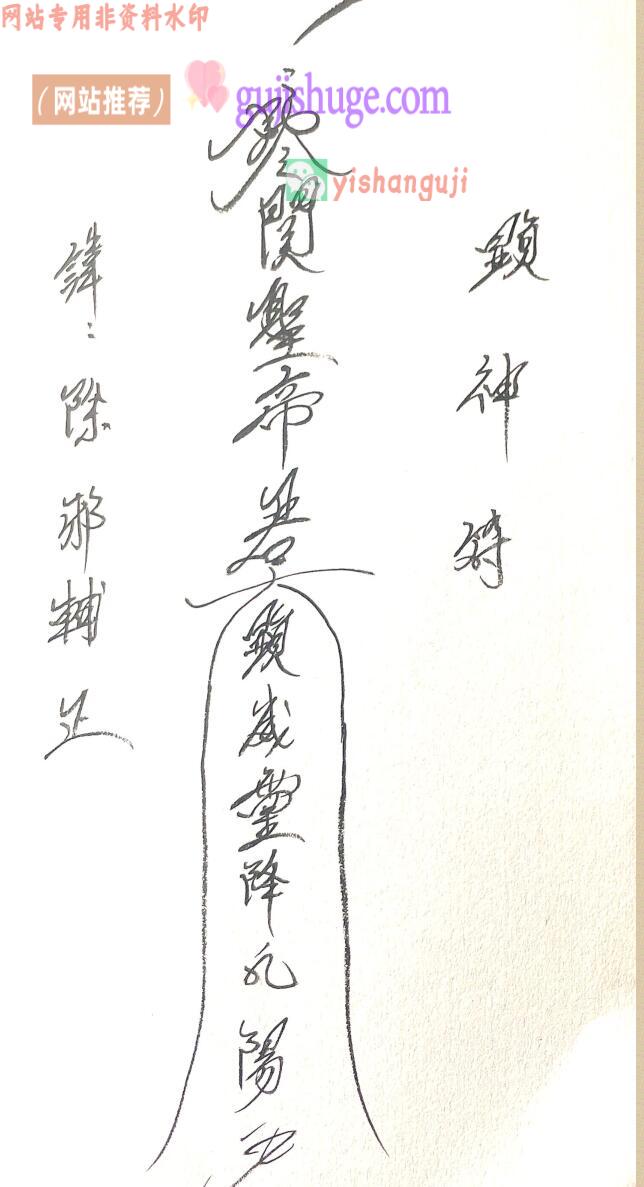 网站专用非资料水印
(网站推荐)
gujishuge.com
yishanguji
鎖神符
關聖帝君
顯威靈降
陽
諱:除邪輔正